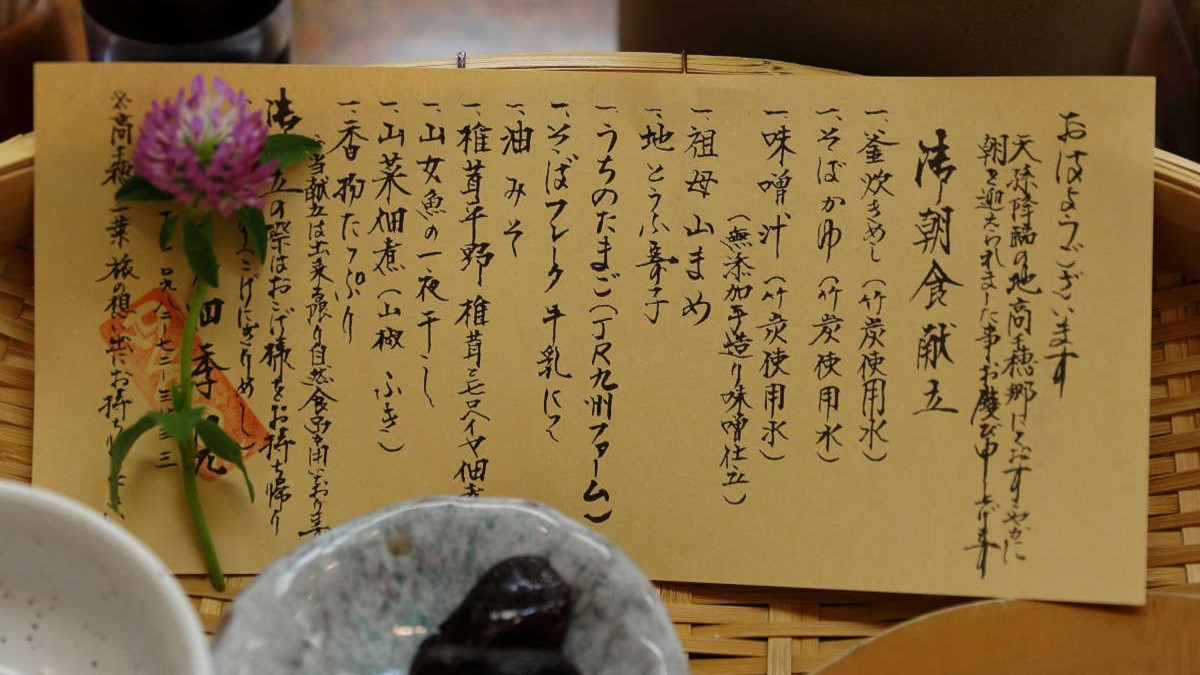 おはようございます
天孫降臨の地高千穂郷にておすこやかに
朝を迎えられました事お慶び申し上げます
御朝食献立
一、釜炊きめし（竹炭使用水）
一、そばかゆ（竹炭使用水）
一、味噌汁（竹炭使用水）
（無添加手造り味噌仕立）
一、祖母山まめ
一、地とうふ
一、うちのたまご（JR九州ファーム）
一、そばフレーク 牛乳にて
一、油みそ
一、椎茸平野 椎茸とモロヘイヤ佃
一、山女魚の一夜干し
一、山菜佃煮（山椒 ふき）
一、香物たっぷり
当献立は土産自然食品を用いおります
立の際はおこげ様をお持ち帰り
こげにぎりめし）
四季見
※高千穂 葉 旅の想い出にお持ち